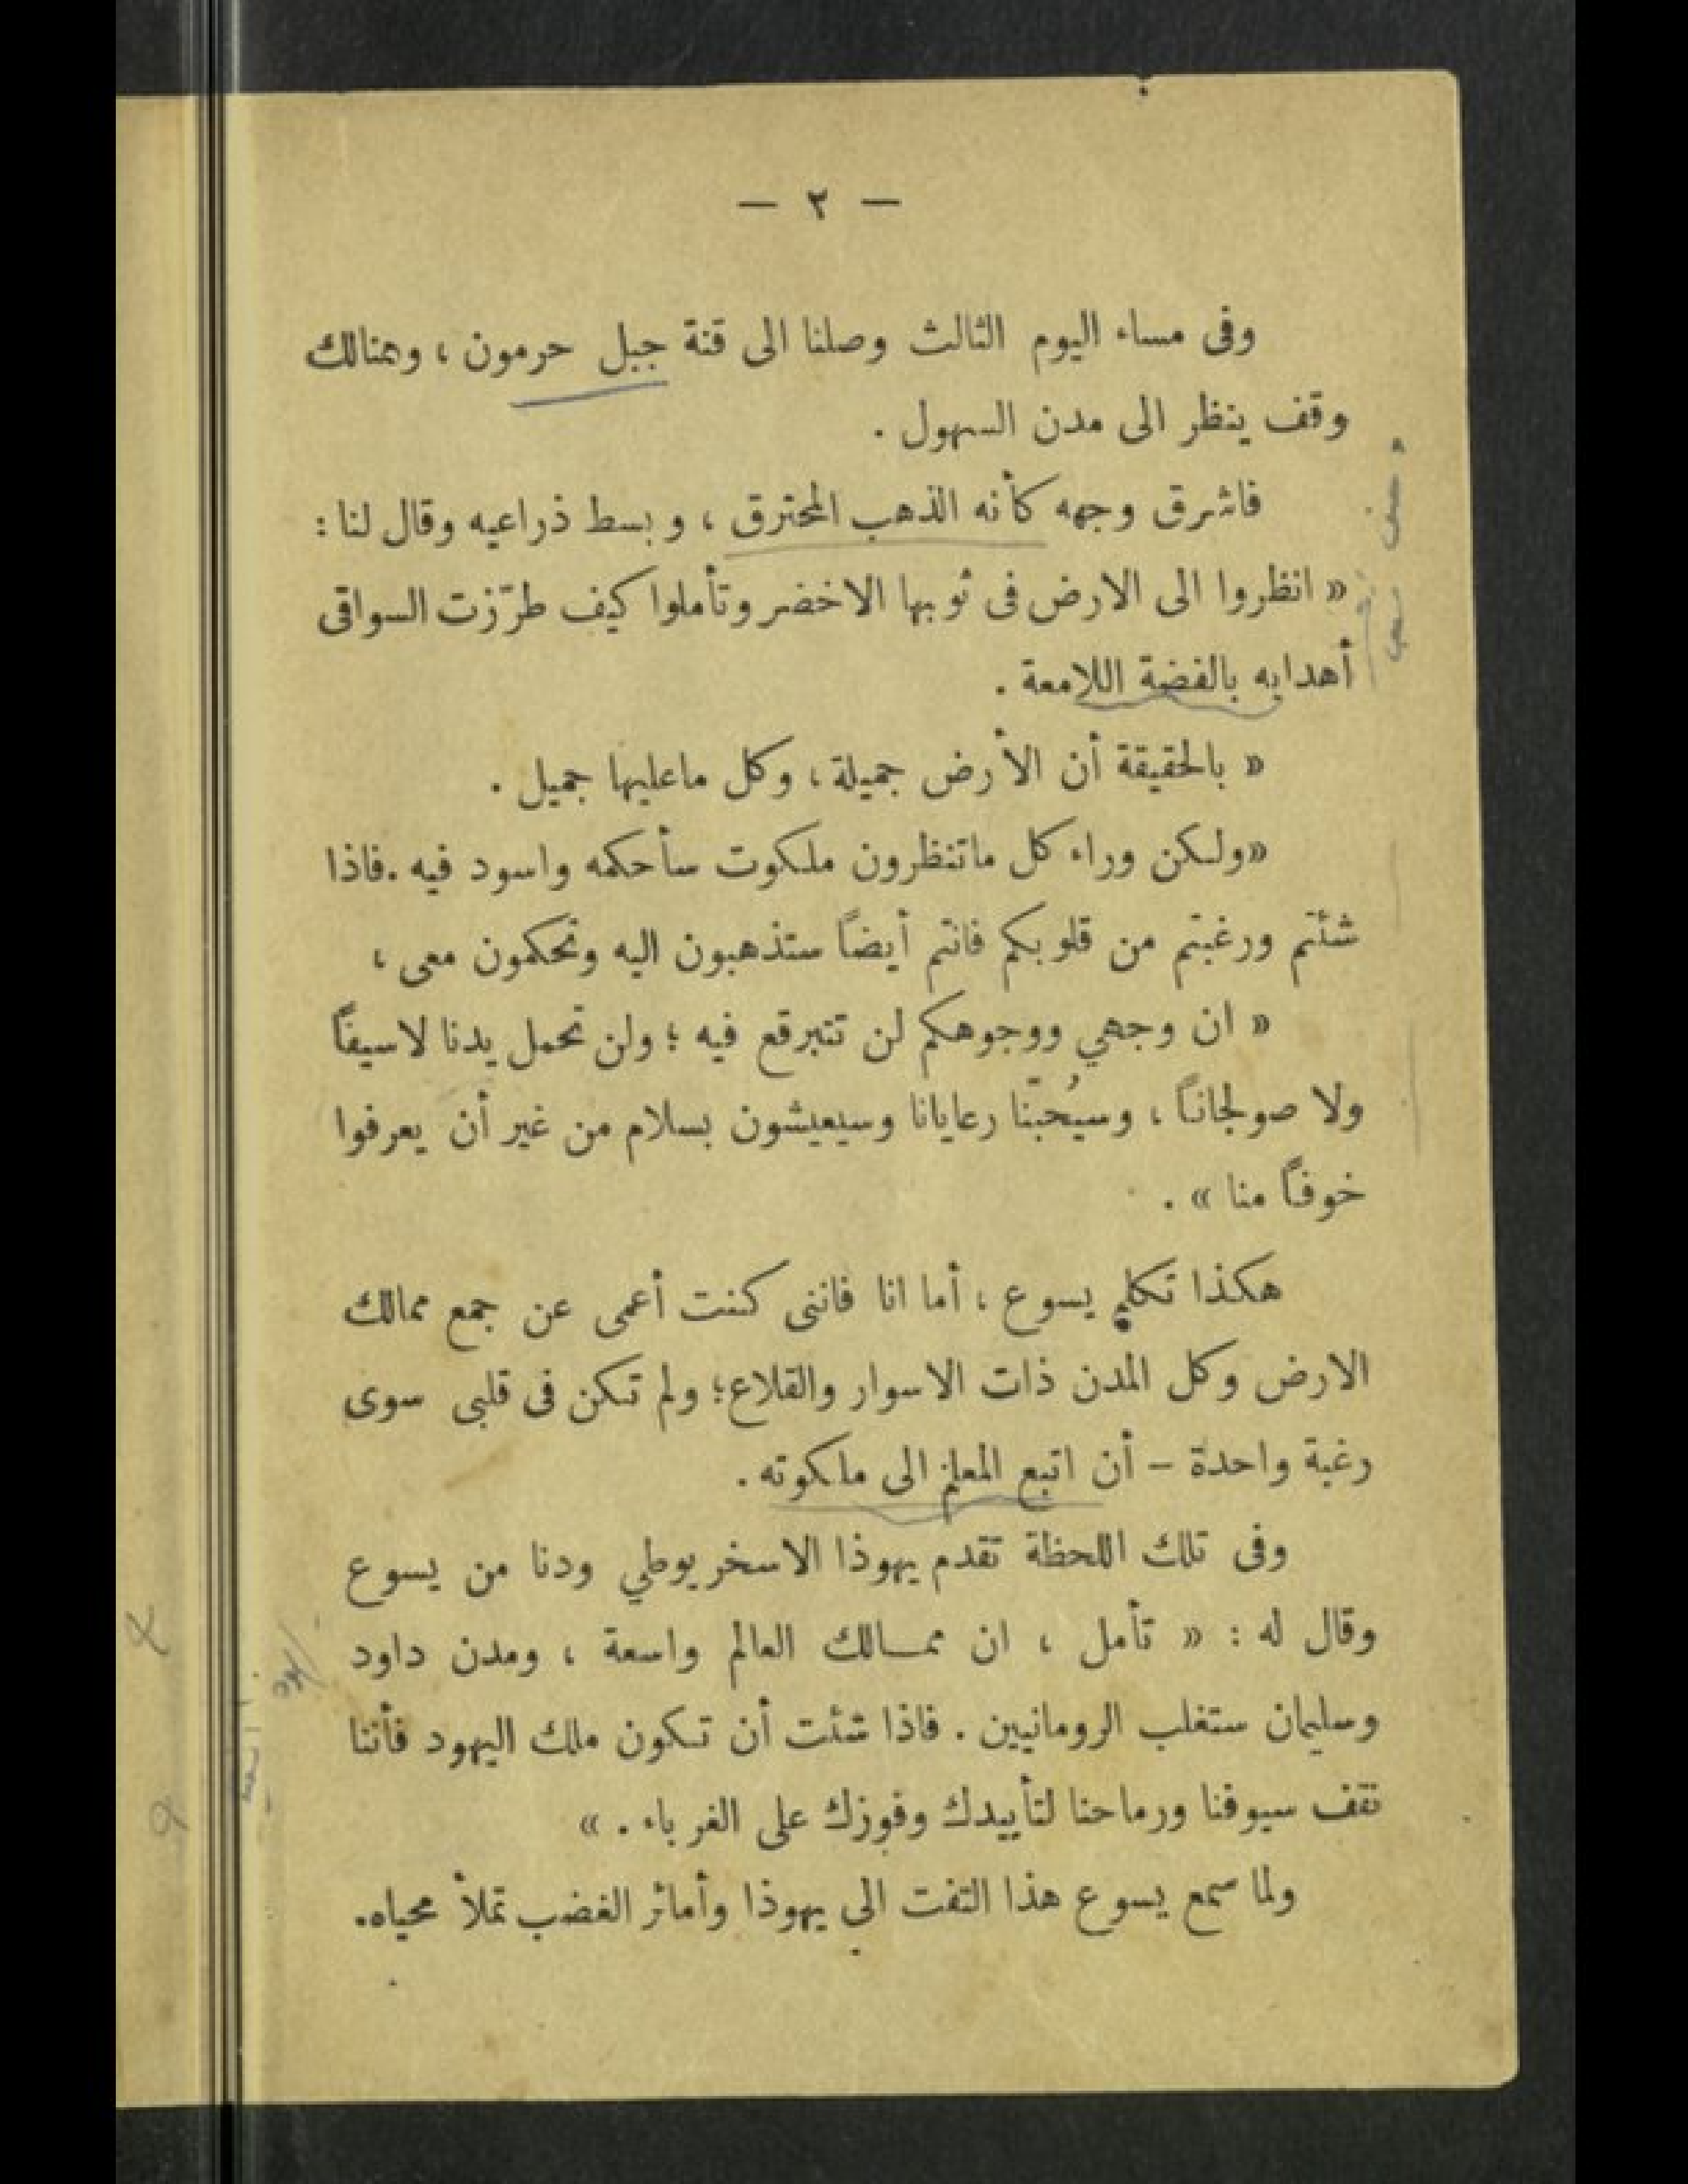 — ٢ —
وفى مساء اليوم الثالث وصلنا الى قنة جبل حرمون ، وهنالك
وقف ينظر الى مدن السهول .
فاشرق وجهه كأنه الذهب المحترق ، وبسط ذراعيه وقال لنا :
« انظروا الى الارض فى ثوبها الاخضر وتأملوا كيف طرّزت السواقى
أهدابه بالفضة اللامعة .
« بالحقيقة أن الأرض جميلة ، وكل ماعليها جميل .
«ولكن وراء كل ماتنظرون ملكوت سأحكمه واسود فيه . فاذا
شئتم ورغبتم من قلوبكم فانتم أيضاً ستذهبون اليه وتحكمون معى ،
« ان وجهي ووجوهكم لن تتبرقع فيه ؛ ولن تحمل يدنا لاسيفاً
ولا صولجاناً ، وسيُحبّنا رعايانا وسيعيشون بسلام من غير أن يعرفوا
خوفاً منا » .
هكذا تكلم يسوع ، أما انا فاننى كنت أعمى عن جمع ممالك
الارض وكل المدن ذات الاسوار والقلاع؛ ولم تكن فى قلبى سوى
رغبة واحدة – أن اتبع المعلم الى ملكوته .
وفى تلك اللحظة تقدم يهوذا الاسخريوطي ودنا من يسوع
وقال له : « تأمل ، ان ممـالك العالم واسعة ، ومدن داود
وسليمان ستغلب الرومانيين . فاذا شئت أن تكون ملك اليهود فأننا
نقف سيوفنا ورماحنا لتأييدك وفوزك على الغرباء . »
ولما سمع يسوع هذا التفت الي يهوذا وأمائر الغضب تملأ محياه.